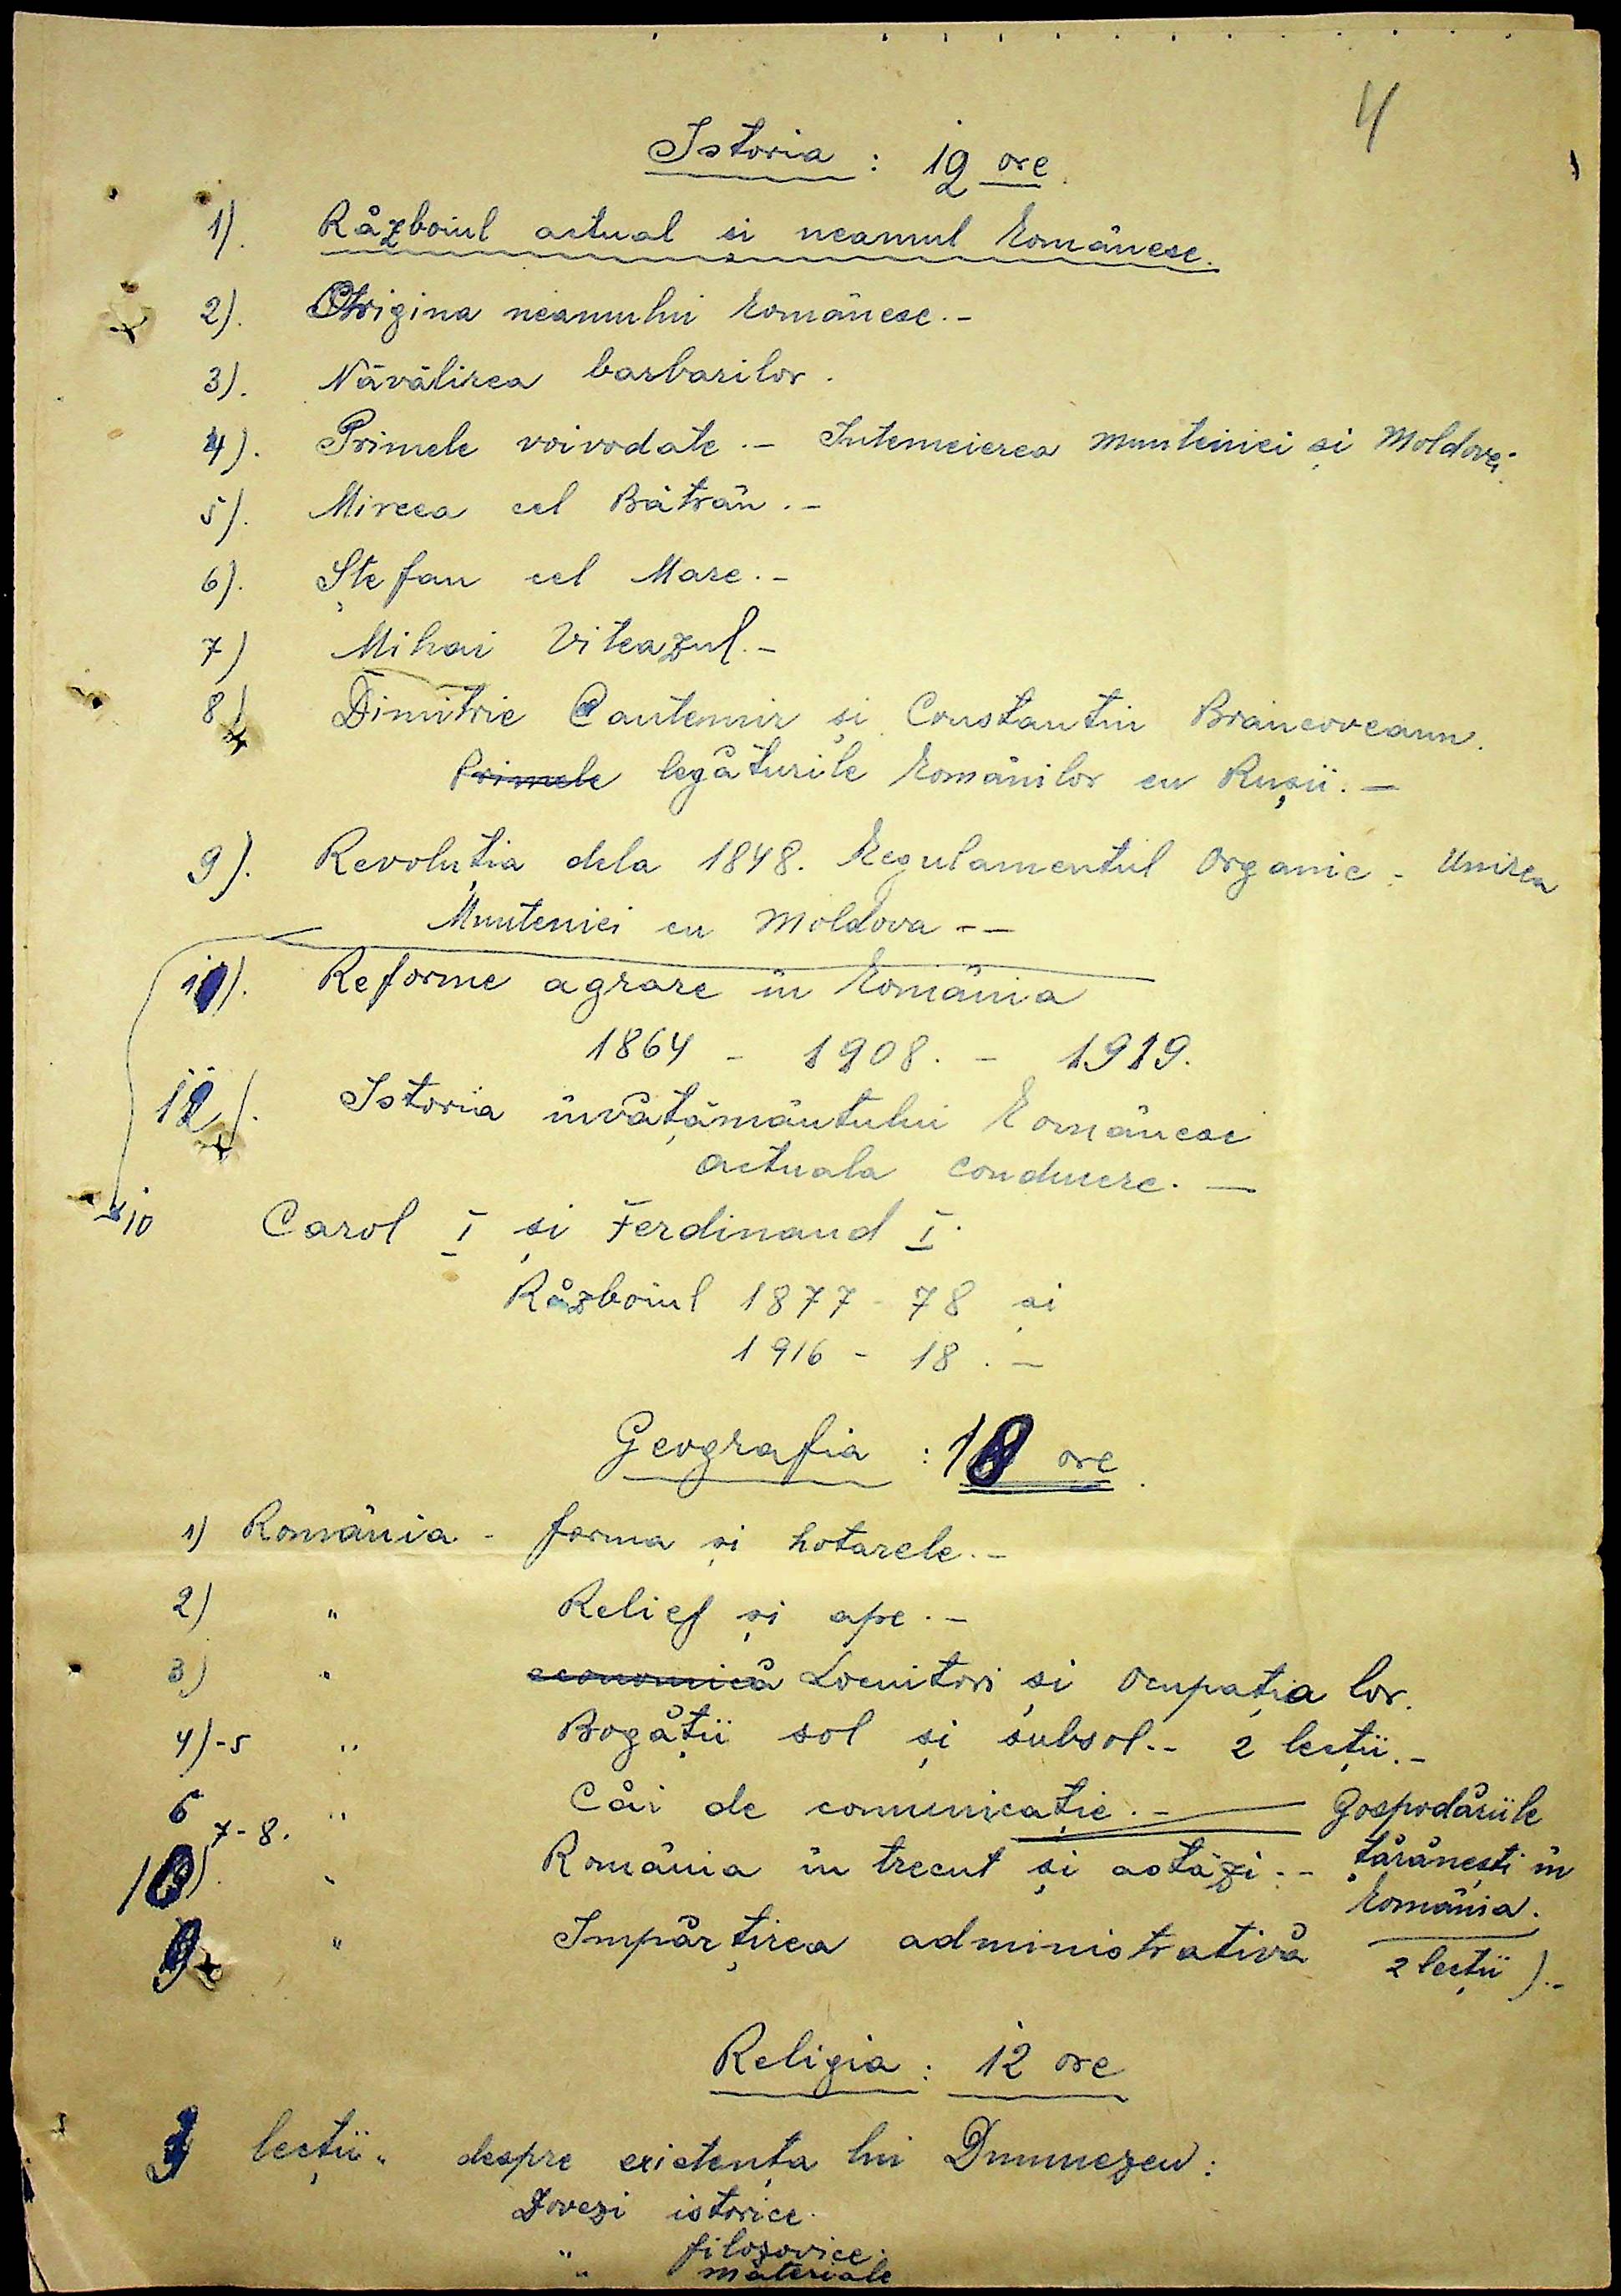 4
Istoria : 12 ore.
1). Războiul actual si neamul românesc.
2). Originea neamului românesc.-
3). Năvălirea barbarilor.
4). Primele voivodate.- Intemeierea munteniei și Moldovei.
5). Mircea cel Bătrân.-
6). Ștefan cel Mare.-
7) Mihai Viteazul.-
8) Dimitrie Cantemir și Constantin Brâncoveanu.
Primele legăturile românilor cu Rușii.-
9). Revoluția dela 1848. Regulamentul organic - Unirea
Munteniei cu Moldova --
11). Reforme agrare în România
1864 - 1908. - 1919.
12). Istoria învățământului românesc
actuala conducere.-
10 Carol I și Ferdinand I.
Războiul 1877-78 și
1916-18.-
Geografia : 10 ore.
1) România - forma și hotarele.-
2) " Relief și ape.-
3) " economică Locuitori și ocupația lor.
4)-5 " Bogății sol și subsol.- 2 lecții.-
6 " Căi de comunicație.- Gospodăriile
7-8. țărănești în
10) " România în trecut și astăzi.- România.
9 " Impărțirea administrativă 2 lecții).-
Religia : 12 ore
3 lecții " despre existența lui Dumnezeu:
Dovezi istorice.
" filozovice.
" materiale